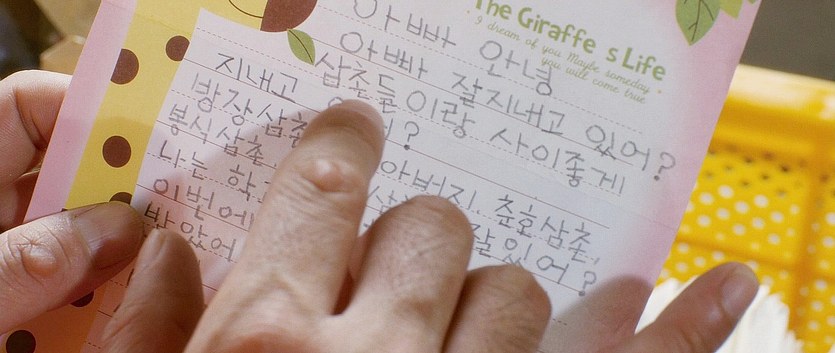 The Giraffe s Life
"I dream of you Maybe someday
you will come true."
아빠 안녕
아빠 잘지내고 있어?
지내고 삼촌들이랑 사이좋게
방장삼촌 아버지, 춘호삼촌,
봉식삼촌, 잘있어?
나는
이번에
받았어